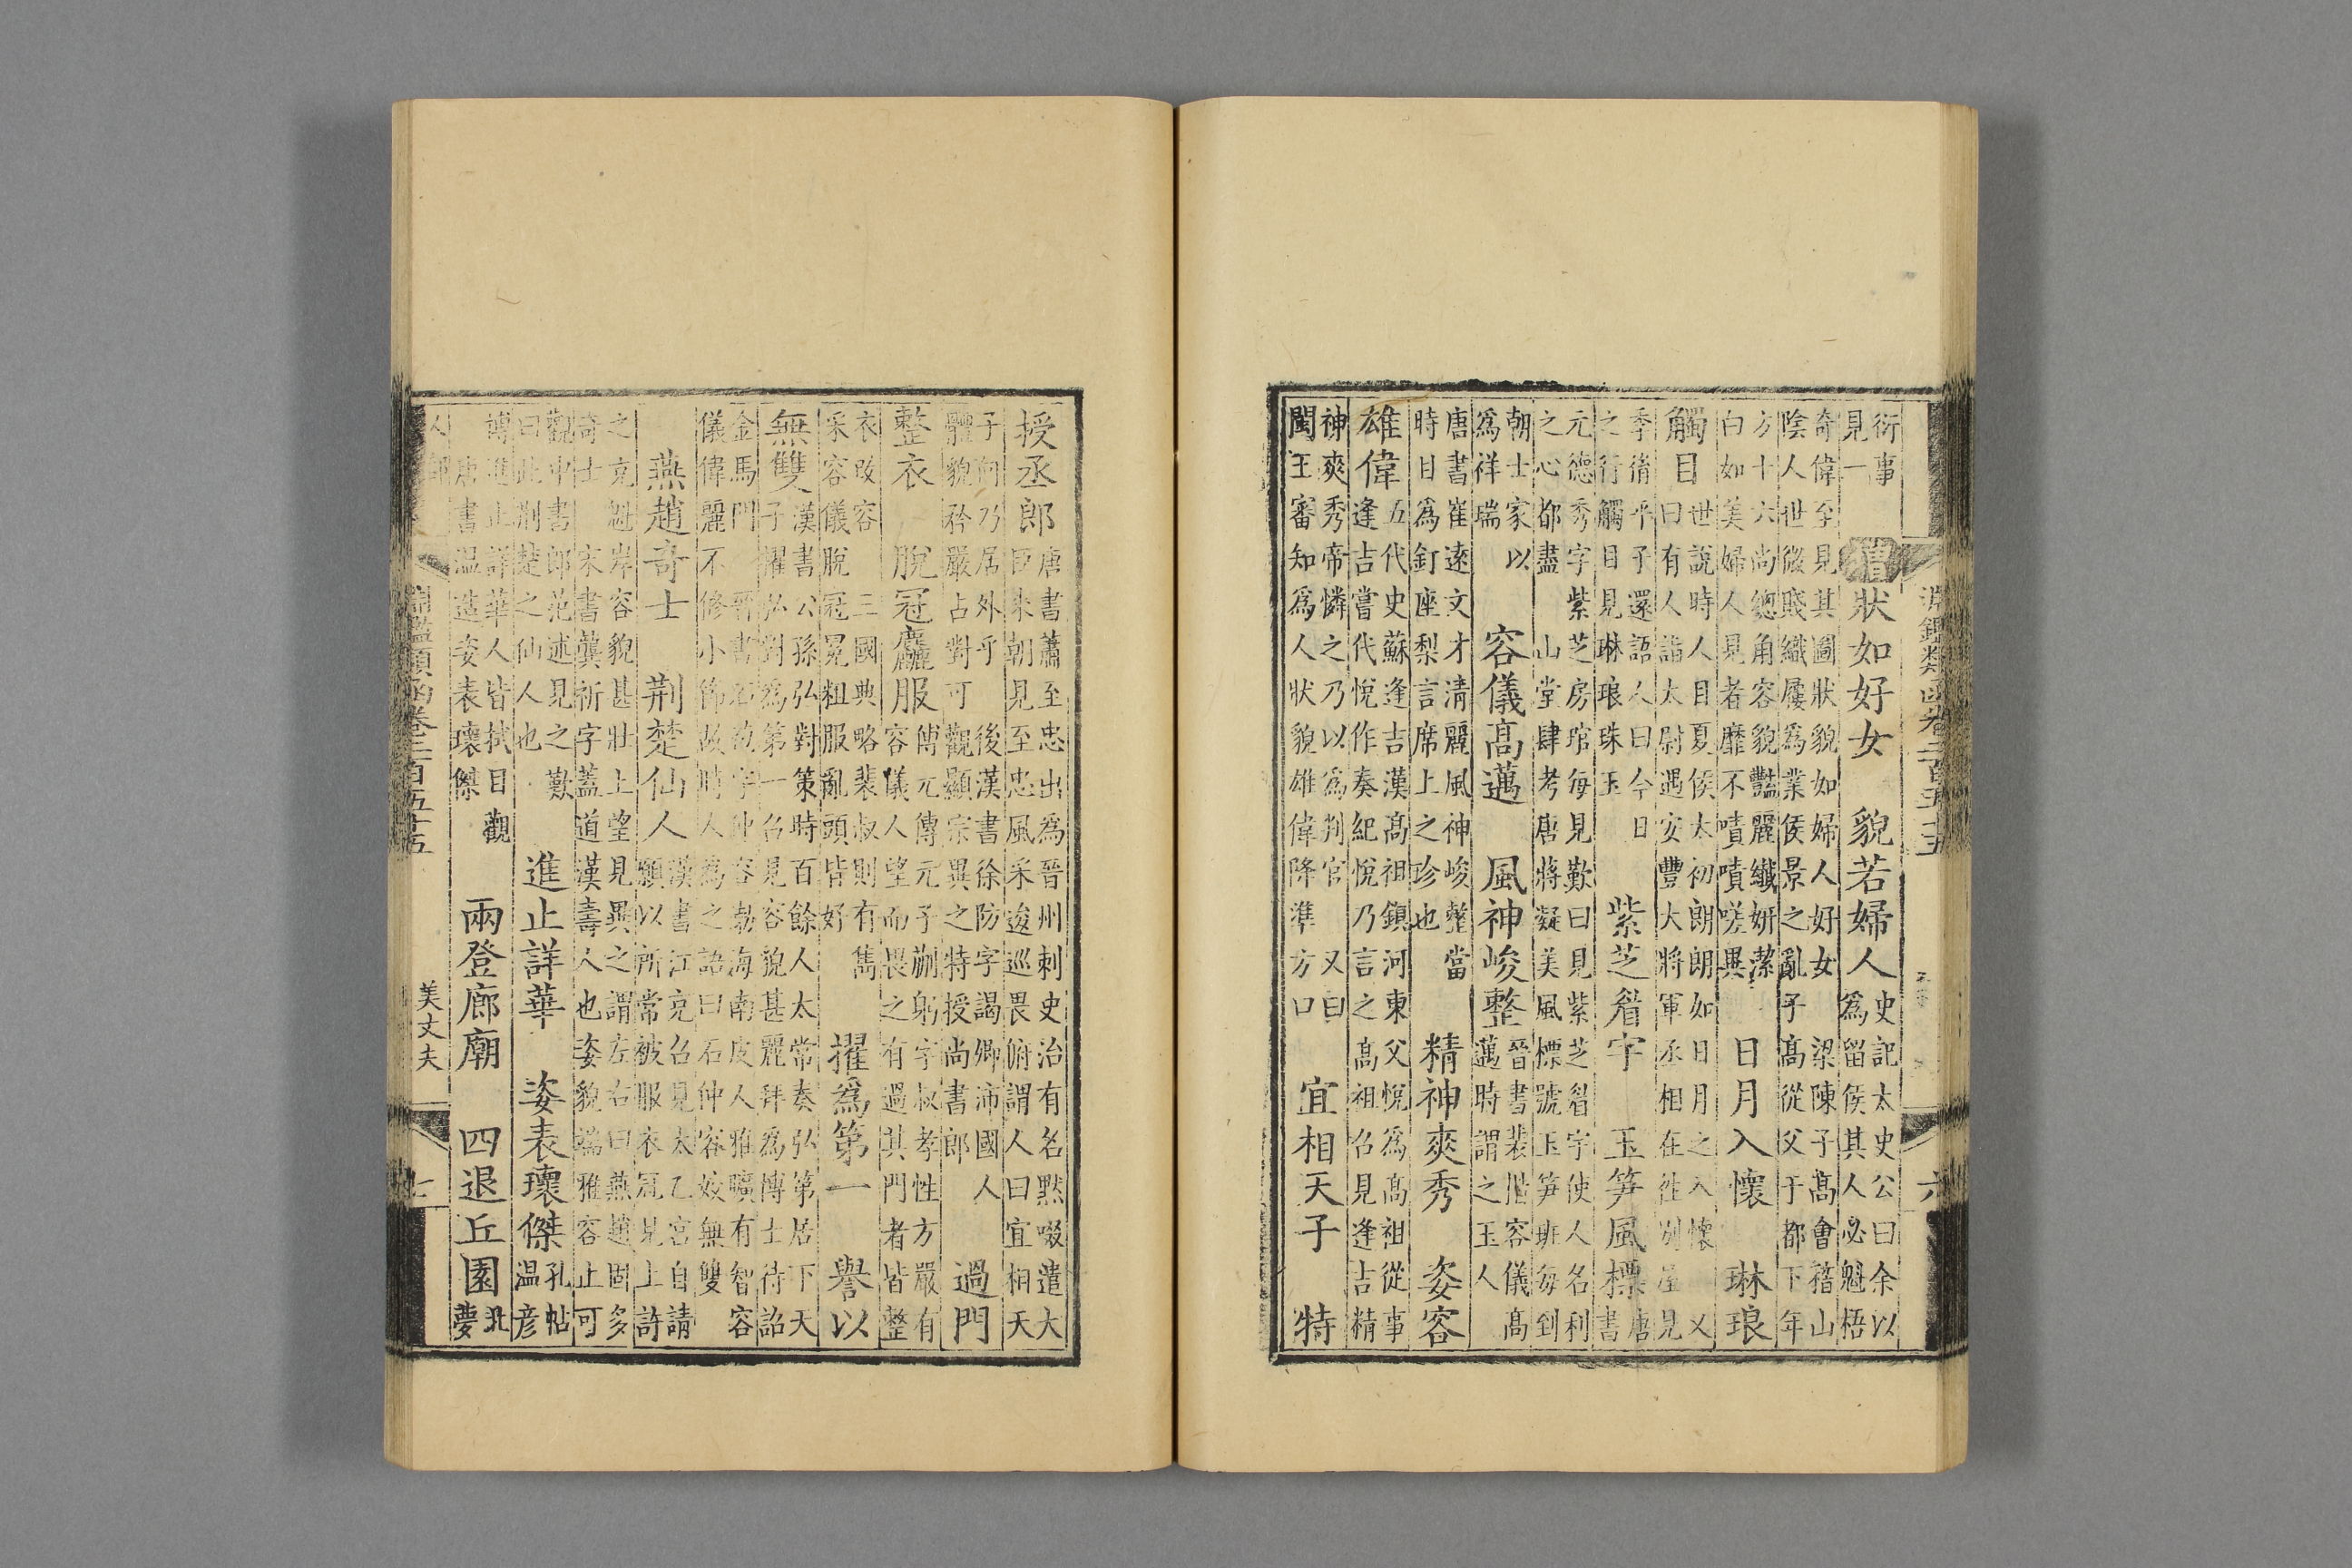 淵鑑類函卷二百五十五
六
衍事見一 增 狀如好女 貌若婦人 史記太史公曰余以為留侯其人必魁梧
奇偉至見其圖狀貌如婦人好女 梁陳子高會稽山陰人世微賤織屨為業侯景之亂子高從父于都下年
方十六尚總角容貌豔麗纖妍潔白如美婦人見者靡不嘖嘖嗟異 日月入懷 琳琅
觸目 世說時人目夏侯太初朗朗如日月之入懷 又曰有人詣太尉遇安豐大將軍丞相在往別屋見
季脩平子還語人曰今日之行觸目見琳琅珠玉 紫芝眉宇 玉筍風標 唐書
元德秀字紫芝房琯每見歎曰見紫芝眉宇使人名利之心都盡 山堂肆考唐蔣凝美風標號玉筍班每到
朝士家以為祥瑞 容儀高邁 風神峻整 晉書裴楷容儀高邁時謂之玉人
唐書崔遠文才清麗風神峻整當時目為釘座梨言席上之珍也 精神爽秀 姿容
雄偉 五代史蘇逢吉漢高祖鎮河東父悅為高祖從事逢吉嘗代悅作奏紀悅乃言之高祖召見逢吉精
神爽秀帝憐之乃以為判官 又曰閩王審知為人狀貌雄偉隆準方口 宜相天子 特
授丞郎 唐書蕭至忠出為晉州刺史治有名默啜遣大臣來朝見至忠風采逡巡畏俯謂人曰宜相天
子何乃居外乎 後漢書徐防字謁卿沛國人體貌矜嚴占對可觀顯宗異之特授尚書郎 過門
整衣 脫冠麤服 傅元傳元子剬躬字叔孝性方嚴有容儀人望而畏之有過其門者皆整
衣改容 三國典略裴叔則有雋采容儀脫冠冕粗服亂頭皆好 擢為第一 譽以
無雙 漢書公孫弘對策時百餘人太常奏弘第居下天子擢弘對為第一召見容貌甚麗拜為博士待詔
金馬門 晉書石苞字仲容勃海南皮人雅曠有智容儀偉麗不修小節故時人為之語曰石仲容姣無雙
燕趙奇士 荊楚仙人 漢書江充召見太乙宮自請願以所常被服衣冠見上許
之充魁岸容貌甚壯上望見異之謂左右曰燕趙固多奇士 宋書龔祈字蓋道漢壽人也姿貌端雅容止可
觀中書郎范述見之歎曰此荊楚之仙人也 進止詳華 姿表瓌傑 孔帖溫彥
博進止詳華人皆拭目觀 唐書溫造姿表瓌傑 兩登廊廟 四退丘園 北夢
人部
淵鑑類函卷二百五十五
美丈夫
七